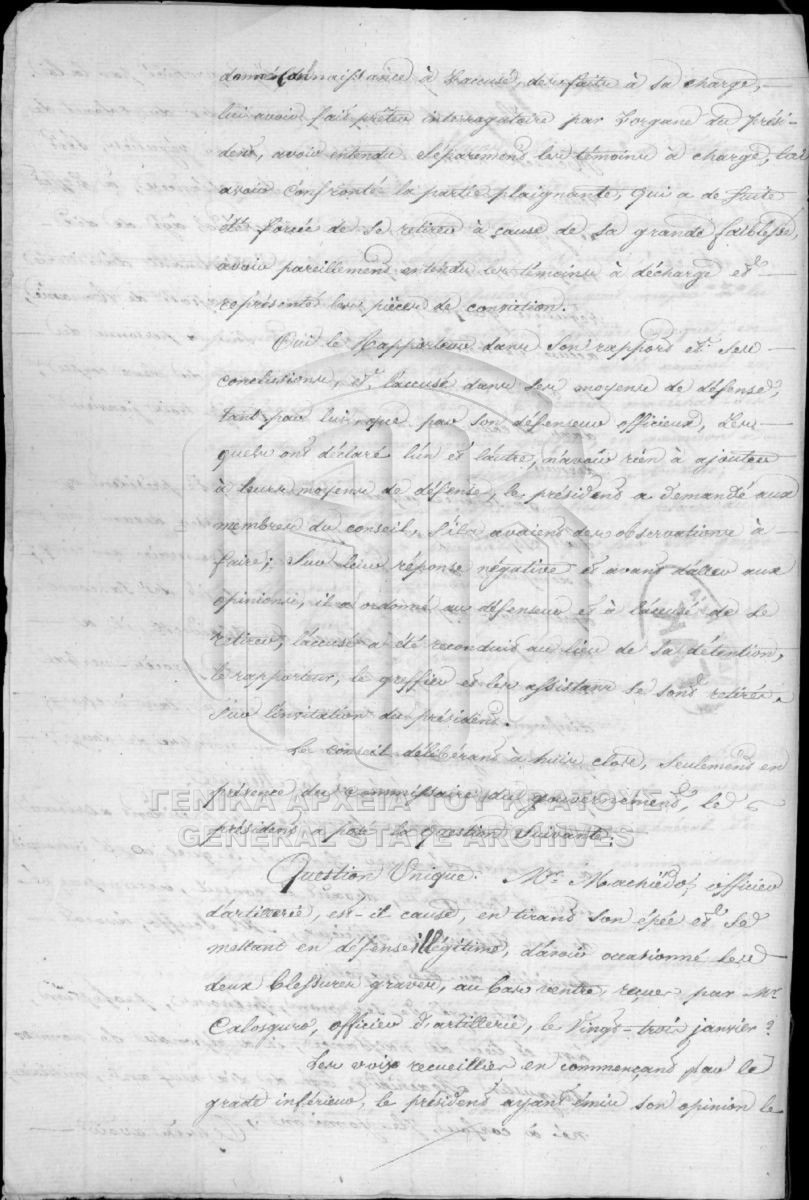 donné connaissance à l'accusé, des faits à sa charge,
lui avoir fait prêter interrogatoire par l'organe du prési-
dent, avoir entendu séparement les témoins à charge, lui
avoir confronté la partie plaignante, qui a de suite
été forcée de se retirer à cause de sa grande faiblesse,
avoir pareillement entendu les témoins à décharge et
représenté les pièces de conviction.
Oui le Rapporteur dans son rapport et ses
conclusions, et l'accusé dans ses moyens de défense,
tant par lui, que par son défenseur officieux, les-
quels ont déclaré l'un et l'autre, n'avoir rien à ajouter
à leurs moyens de défense, le président a demandé aux
membres du conseil, s'ils avaient des observations à
faire; Sur leur réponse négative et avant d'aller aux
opinions, il a ordonné au défenseur et à l'accusé de se
retirer; l'accusé a été reconduit au lieu de sa détention,
le rapporteur, le greffier et les assistans se sont retirés
sur l'invitation du président.
Le conseil délibérant à huis clos, seulement en
présence du commissaire du gouvernement, le
président a posé la question suivante.
ΓΕΝΙΚΑ ΑΡΧΕΙΑ ΤΟΥ ΚΡΑΤΟΥΣ
GENERAL STATE ARCHIVES
Question Unique. Mr. Machiedo, officier
d'artillerie, est-il cause, en tirant son épée et se
mettant en défense illégitime, d'avoir occasionné les
deux blessures graves, au bas ventre, reçues par Mr.
Calosguro, officier d'artillerie, le vingt-trois janvier?
Les voix recueillies en commençant par le
grade inférieur, le président ayant émis son opinion le